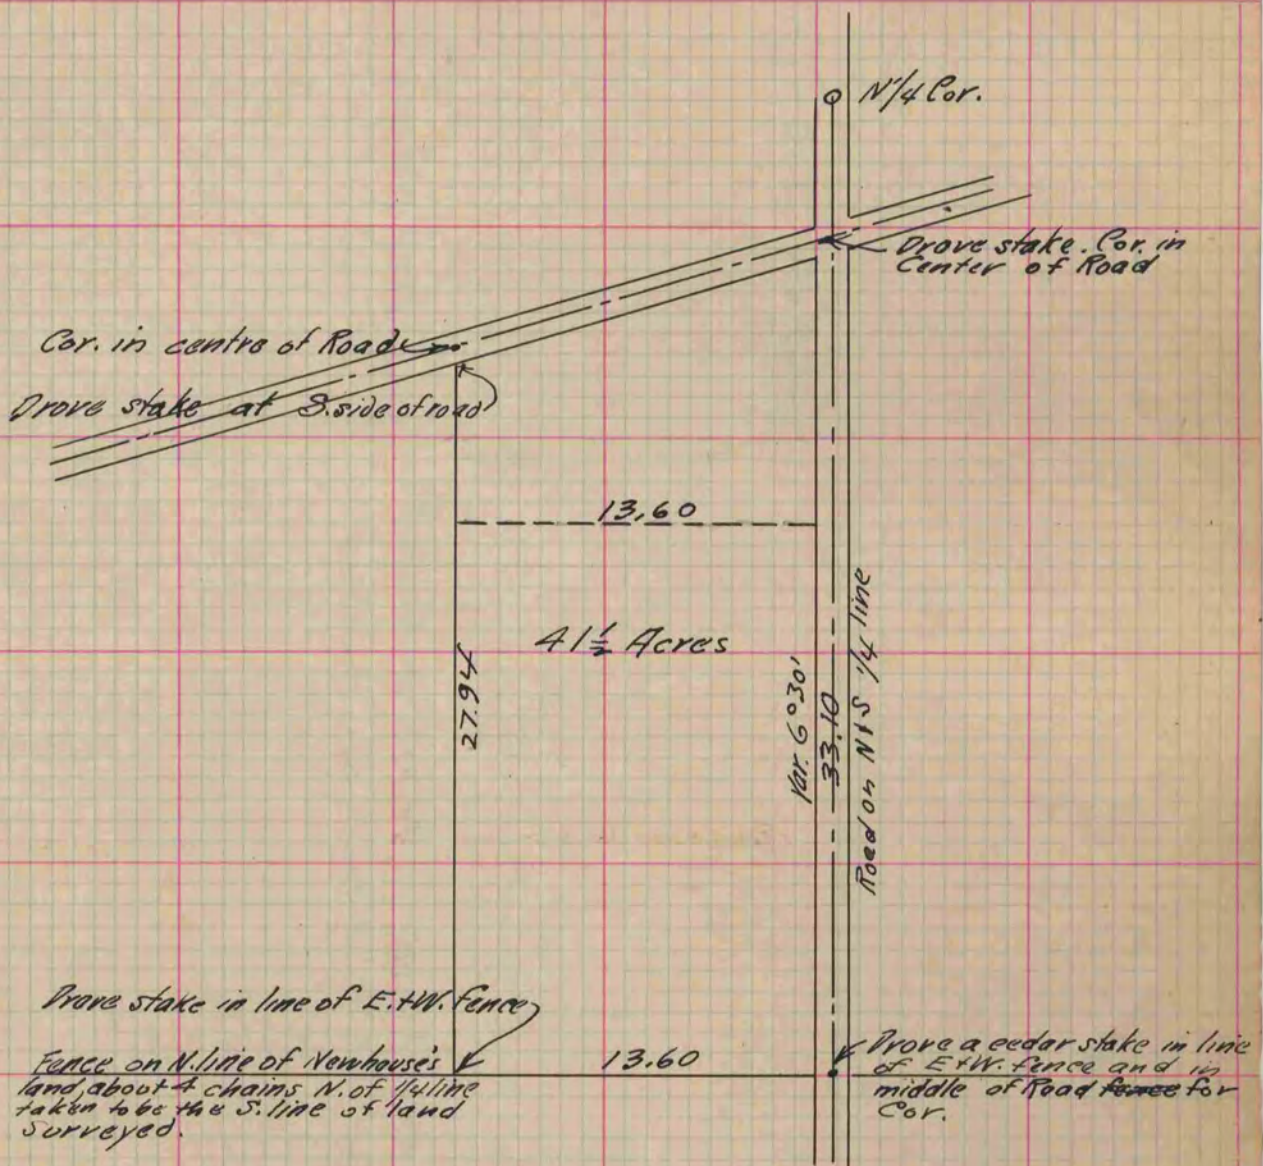 N 1/4 Cor.
Drove stake. Cor. in
Center of Road
Cor. in centre of Road
Drove stake at S. side of road
13.60
41 1/2 Acres
27.94
Var. 6° 30'
33.10
Road on N & S 1/4 line
Drove stake in line of E. + W. fence
Fence on N. line of Newhouse's
land, about 4 chains N. of 1/4 line
taken to be the S. line of land
surveyed.
13.60
Drove a cedar stake in line
of E + W. fence and in
middle of Road fence for
Cor.